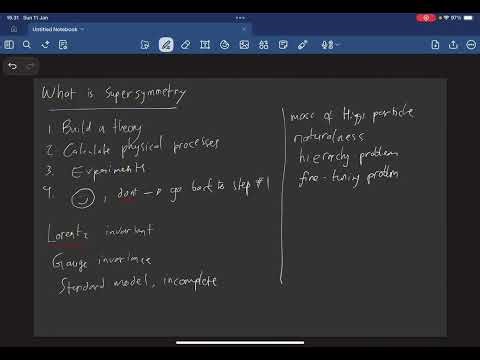 19.31 Sun 11 Jan
97%
Untitled Notebook
What is supersymmetry
1. Build a theory
2. Calculate physical processes
3. Experiments
4. , dont → go back to step #1
Lorentz invariant
Gauge invariance
Standard model, incomplete
mass of Higgs particle
naturalness
hierarchy problem
fine-tuning problem